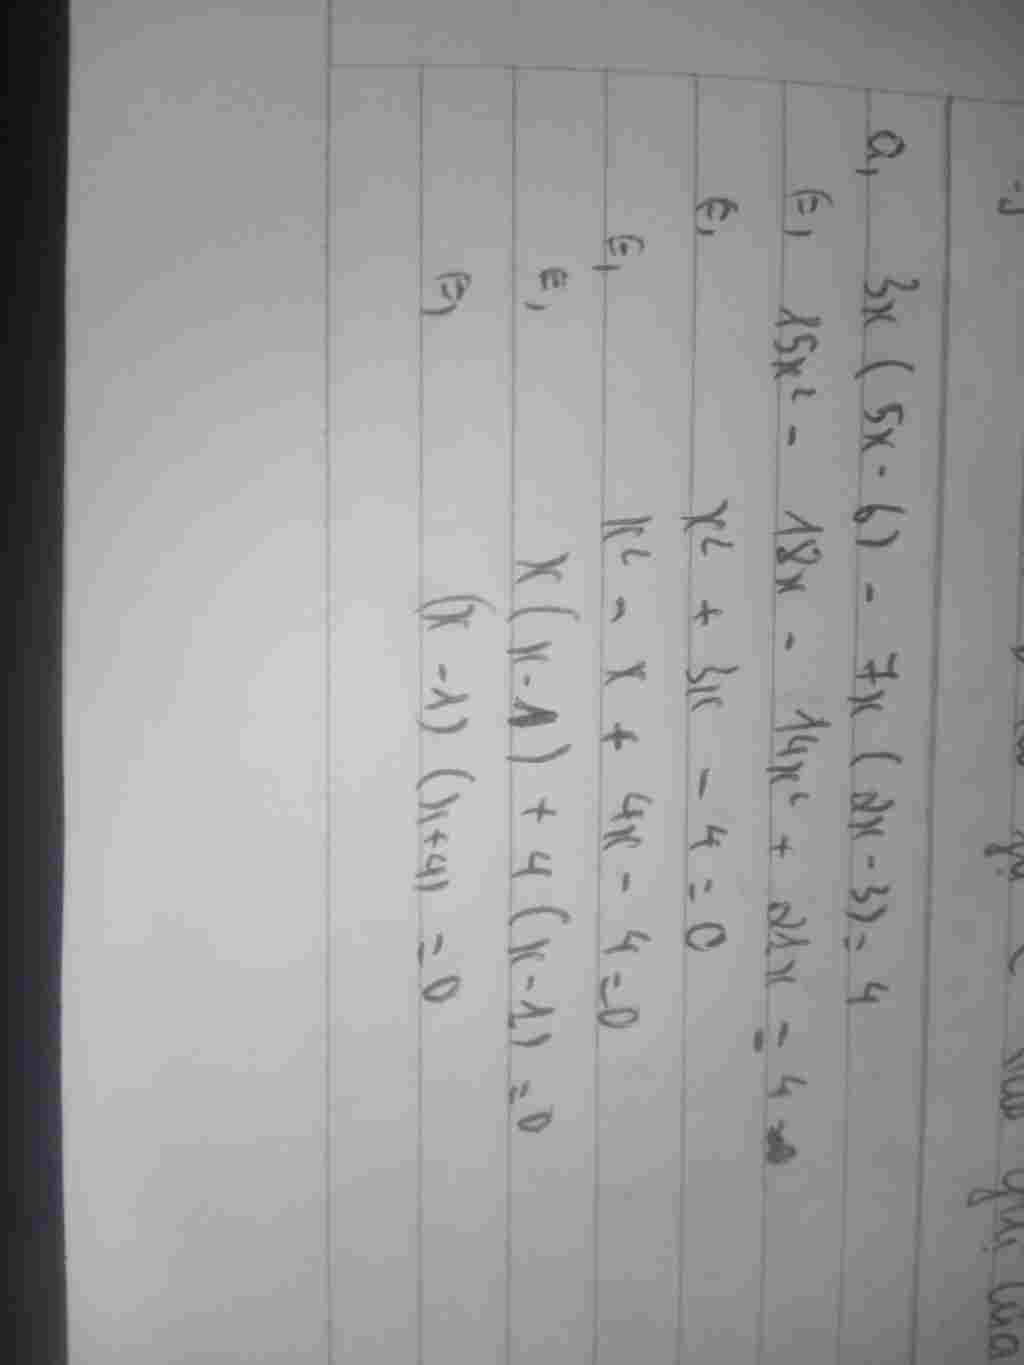 a, 3x ( 5x - 6) - 7x ( 2x - 3) = 4
(=, 15x² - 18x - 14x² + 21x = 4
€, x² + 3x - 4 = 0
€, x² - x + 4x - 4 = 0
€, x ( x - 1) + 4 ( x - 1) = 0
€, (x - 1) (x + 4) = 0